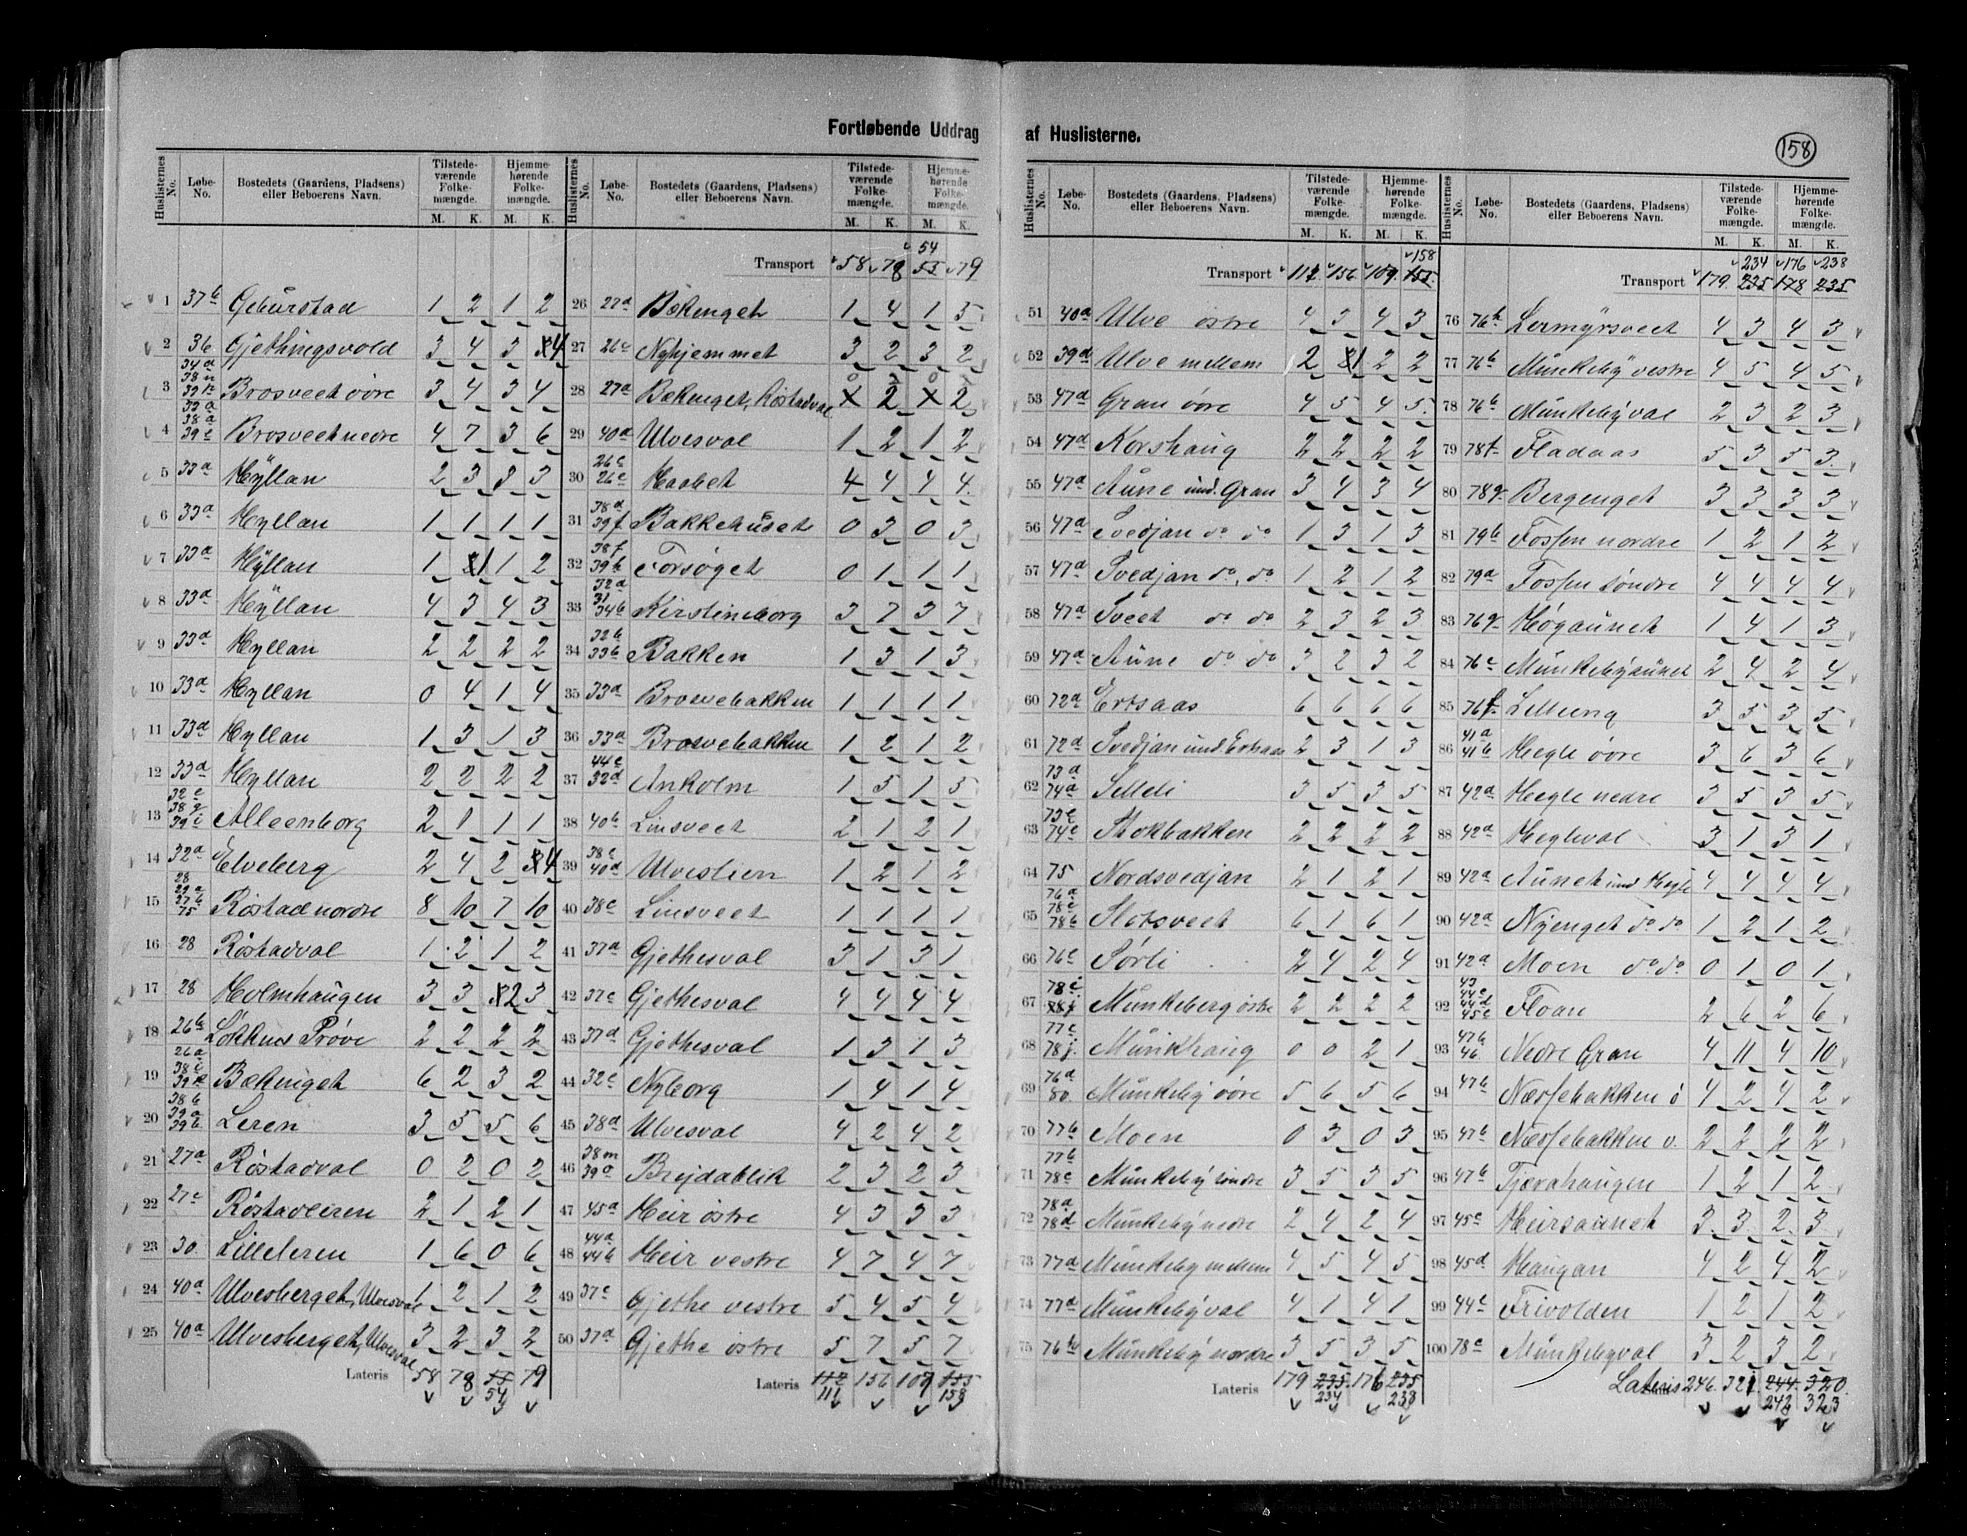 Fortløbende Uddrag af Huslisterne.
158
Huslisternes No. Løbe-No. Bostedets (Gaardens, Pladsens) eller Beboerens Navn. Tilstede-værende Folke-mængde. M. K. Hjemme-hørende Folke-mængde. M. K.
1 37b Geburstad 1 2 1 2
2 36 Gjethingsvold 3 4 3 4
3 34a 38n 39h Brosveet øvre 3 4 3 4
4 33a 38a 39e Brosveet nedre 4 7 3 6
5 33a Hyllan 2 3 3 3
6 33a Hyllan 1 1 1 1
7 33a Hyllan 1 1 1 2
8 33a Hyllan 4 3 4 3
9 33a Hyllan 2 2 2 2
10 33a Hyllan 0 4 1 4
11 33a Hyllan 1 3 1 3
12 33a Hyllan 2 2 2 2
13 32e 38g 39i Alleenborg 2 1 1 1
14 32a Elveberg 2 4 2 4
15 28 29a 27b 75 Røstad nordre 8 10 7 10
16 28 Røstadval 1 2 1 2
17 28 Holmhaugen 3 3 2 3
18 26b Løkkens Prøve 2 2 2 2
19 26a 38e 39k Bækenget 6 2 3 2
20 38b 39a 39b Leren 3 5 5 6
21 27a Røstadval 0 2 0 2
22 27c Røstadleiren 2 1 2 1
23 30. Lilleleren 1 6 0 6
24 40a Ulvesberget, Ulvesval 1 2 1 2
25 40a Ulvesberget, Ulvesval 3 2 3 2
Lateris 58 78 55 79
54
Huslisternes No. Løbe-No. Bostedets (Gaardens, Pladsens) eller Beboerens Navn. Tilstede-værende Folke-mængde. M. K. Hjemme-hørende Folke-mængde. M. K.
54
Transport 58 78 55 79
26 27d Bækenget 1 4 1 5
27 26c Nyhjemmet 3 2 3 2
28 27a Bækenget, Røstadval x 2 x 2
29 40a Ulvesval 1 2 1 2
30 26c 26e Haabet 4 4 4 4
31 38d 39f Bakkehuset 0 3 0 3
32 38f 39b Forsøget 0 1 1 1
33 32d 31 34b Kirstineborg 3 7 3 7
34 32b 33b Bakken 1 3 1 3
35 33a Brosvebakken 1 1 1 1
36 33a Brosvebakken 1 2 1 2
37 44e 32d Ankolm 1 5 1 5
38 40b Linsveet 2 1 2 1
39 38c 40d Ulveslien 1 2 1 2
40 38c Linsveet 1 1 1 1
41 37a Gjethesval 3 1 3 1
42 37c Gjethesval 4 4 4 4
43 37d Gjethesval 1 3 1 3
44 32c Nyborg 1 4 1 4
45 38d Ulvesval 4 2 4 2
46 38m 39a Brejdablik 2 3 2 3
47 45a Heir østre 4 3 3 3
48 44a 44b Heir vestre 4 7 4 7
49 37c Gjethe vestre 5 4 5 4
50 37a Gjethe østre 5 7 5 7
Lateris 117 156 109 155
116 158
Huslisternes No. Løbe-No. Bostedets (Gaardens, Pladsens) eller Beboerens Navn. Tilstede-værende Folke-mængde. M. K. Hjemme-hørende Folke-mængde. M. K.
158
Transport 117 156 109 155
51 40a Ulve østre 4 3 4 3
52 39d Ulve mellem 2 1 2 2
53 47a Gran øvre 4 5 4 5
54 47d Korshaug 2 2 2 2
55 47a Aune und. Gran 3 4 3 4
56 47a Svedjan do do 1 3 1 3
57 47a Svedjan do. do 1 2 1 2
58 47a Sveet do do 2 3 2 3
59 47a Aune do do 3 2 3 2
60 72a Ertsaas 6 6 6 6
61 72a Svedjan und. Ertsaas 2 3 1 3
62 73a 74a Selleli 3 5 3 5
63 73c 74c Stokbakken 2 2 2 2
64 75 Nordsvedjan 2 1 2 1
65 76a 78c 78b Slotsveet 6 1 6 1
66 76c Sørli 2 4 2 4
67 78i 78j Munkeberg østre 2 2 2 2
68 77c 78j. Munkhaug 0 0 2 1
69 76d 80. Munkeby øvre 5 6 5 6
70 77b Moen 0 3 0 3
71 77b 78c Munkeby søndre 3 5 3 5
72 78a 78d Munkeby nedre 2 4 2 4
73 77a Munkeby mellem 4 5 4 5
74 77a Munkebyval 4 1 4 1
75 76b Munkeby nordre 3 5 3 5
Lateris 179 235 176 235
234 238
Huslisternes No. Løbe-No. Bostedets (Gaardens, Pladsens) eller Beboerens Navn. Tilstede-værende Folke-mængde. M. K. Hjemme-hørende Folke-mængde. M. K.
234 176 238
Transport 179. 235 178 235
76 76h Lermyrsveet 4 3 4 3
77 76b Munkeby vestre 4 5 4 5
78 76b Munkebyval 2 3 2 3
79 78f Fladaas 5 3 5 3
80 78g Bergenget 3 3 3 3
81 79b Fossen nordre 1 2 1 2
82 79a Fossen søndre 4 4 4 4
83 76g Høgaunet 1 4 1 3
84 76e Munkebyaunet 2 4 2 4
85 76f Lilleung 3 5 3 5
86 41a 41b Hegle øvre 3 6 3 6
87 42a Hegle nedre 3 5 3 5
88 42a Hegleval 3 1 3 1
89 42a Aunet und Hegle 4 4 4 4
90 42a Nyenget do do 1 2 1 2
91 42a Moen do do 0 1 0 1
92 43 44c 44d 45c Floan 2 6 2 6
93 47b 46 Nedre Gran 4 11 4 10
94 47b Næssebakken ø 4 2 4 2
95 47b Næssebakken v. 2 2 2 2
96 47b Tjærahaugen 1 2 1 2
97 45c Heirsaunet 3 3 2 3
98 45d Haugan 4 2 4 2
99 44c Frivolden 1 2 1 2
100 78c Munkebyval 3 2 3 2
Lateris 246. 321 244. 320.
242 323